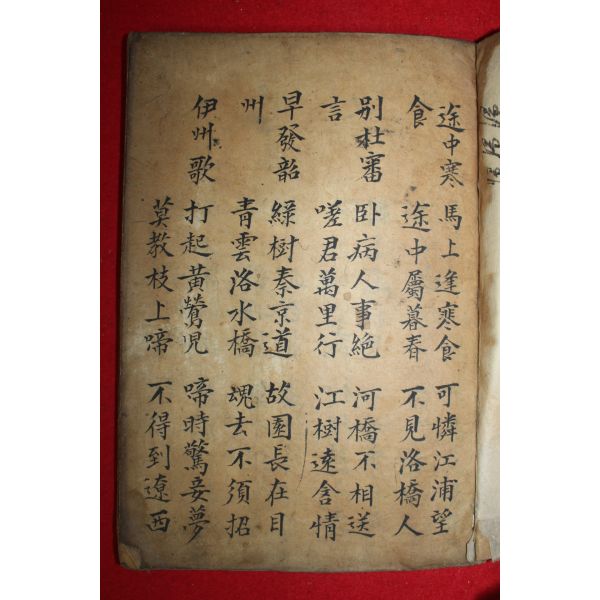 途中寒 馬上逢寒食 可憐江浦望
食 途中屬暮春 不見洛橋人
別杜審 卧病人事絶 河橋不相送
言 嗟君萬里行 江樹遠含情
早發韶 綠樹秦京道 故園長在目
州 青雲洛水橋 魂去不須招
伊州歌 打起黃鶯児 啼時驚妾夢
莫教枝上啼 不得到遼西